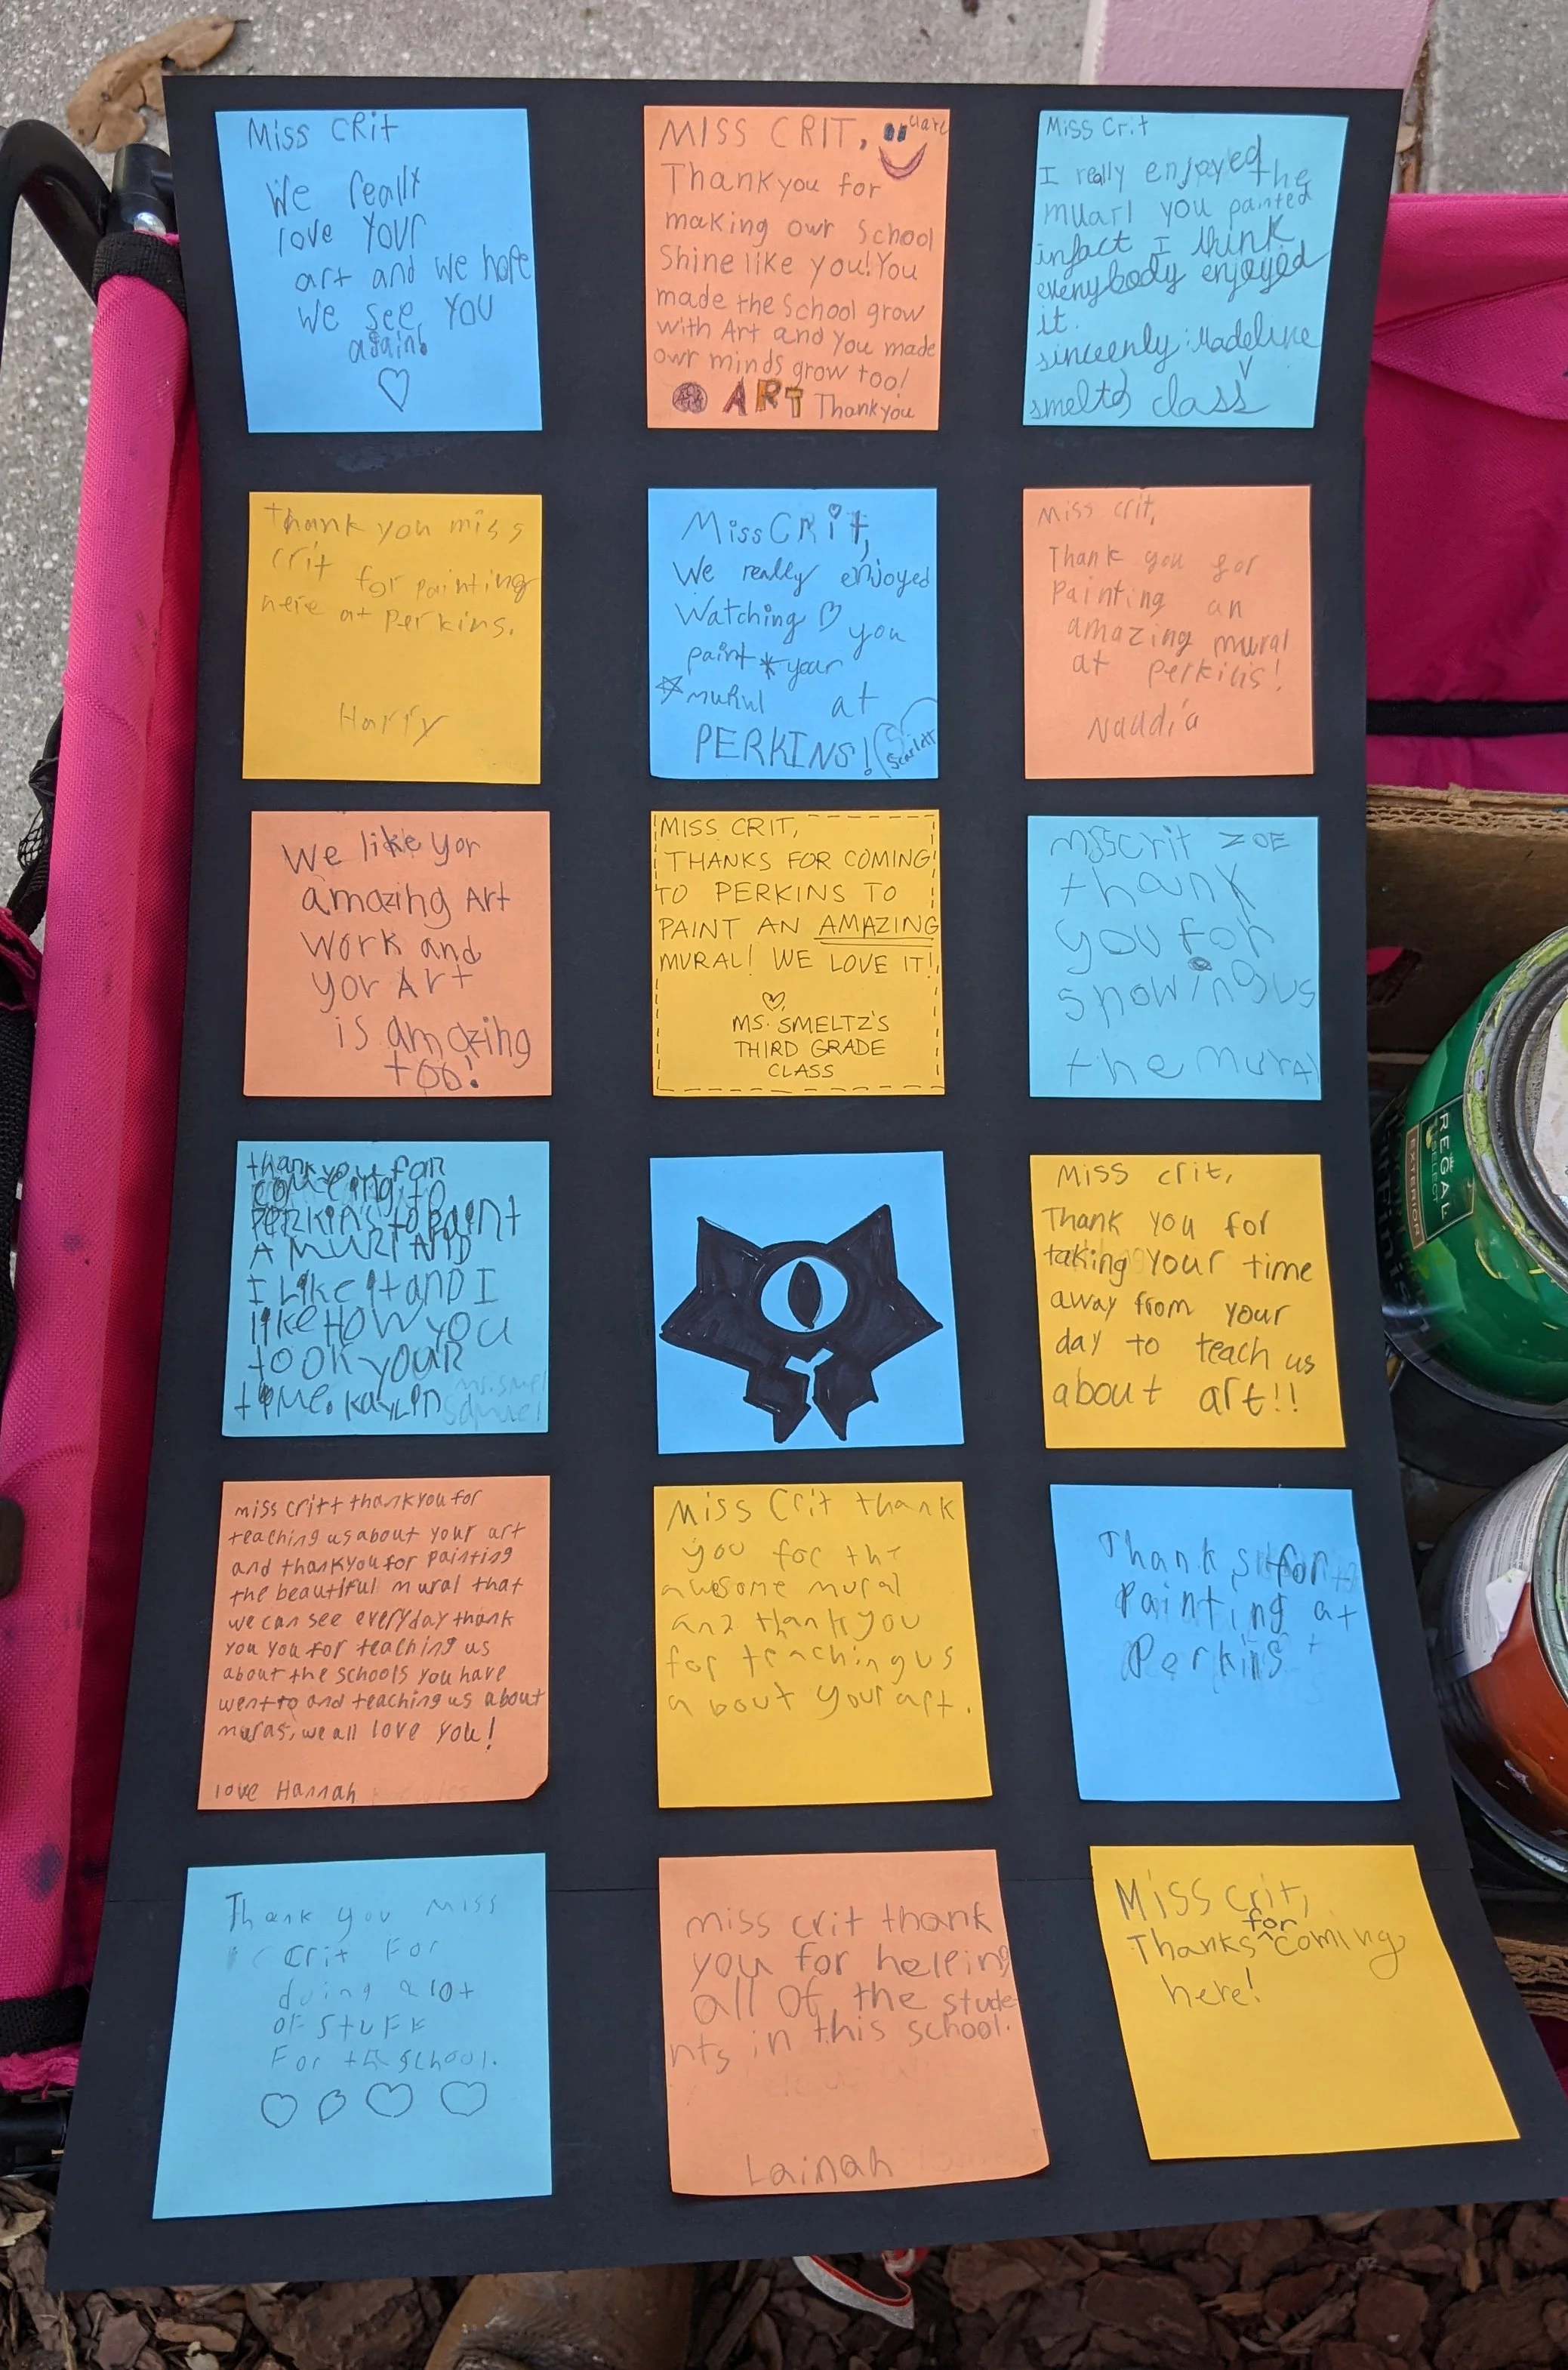 Miss CRit
We really
love your
art and we hope
we see you
again!
MISS CRIT,
Clare
Thankyou for
making owr School
Shine like you! You
made the School grow
with Art and You made
owr minds grow too!
ART Thankyou
Miss Crit
I really enjoyed the
muarl you painted
infact I think
everybody enjoyed
it.
sinceenly: Madeline V
smeltz class
Thank you miss
crit for painting
here at Perkins.
Harry
Miss CRit,
We really enjoyed
Watching you
paint year
at
PERKINS!
Scarlett
Miss crit,
Thank you for
Painting an
amazing mural
at perkins!
Naddia
We like yor
amazing Art
work and
yor Art
is amazing
too!
MISS CRIT,
THANKS FOR COMING
TO PERKINS TO
PAINT AN AMAZING
MURAL! WE LOVE IT!
MS. SMELTZ'S
THIRD GRADE
CLASS
Misscrit ZOE
thank
you for
showing us
the mural
thank you for
coming to
PERKINS to paint
A MURl AND
I LiKe it and I
like HOW you
took your
time. KAYLIN
Samuel
Miss crit,
Thank you for
taking your time
away from your
day to teach us
about art!!
miss critt thankyou for
teaching us about your art
and thankyou for painting
the beautiful mural that
we can see everyday thank
you you for teaching us
about the schools you have
went to and teaching us about
muras, we all love you!
love Hannah
Miss Crit thank
you for the
awesome mural
and thank you
for teaching us
about your art.
Thanks for
Painting at
Perkins
Thank you Miss
Crit For
doing a lot
of stuff
For the school.
miss crit thank
you for helping
all of the stude-
nts in this school.
Lainah
Miss Crit,
Thanks for coming
here!
REGAL
SELECT
EXTERIOR